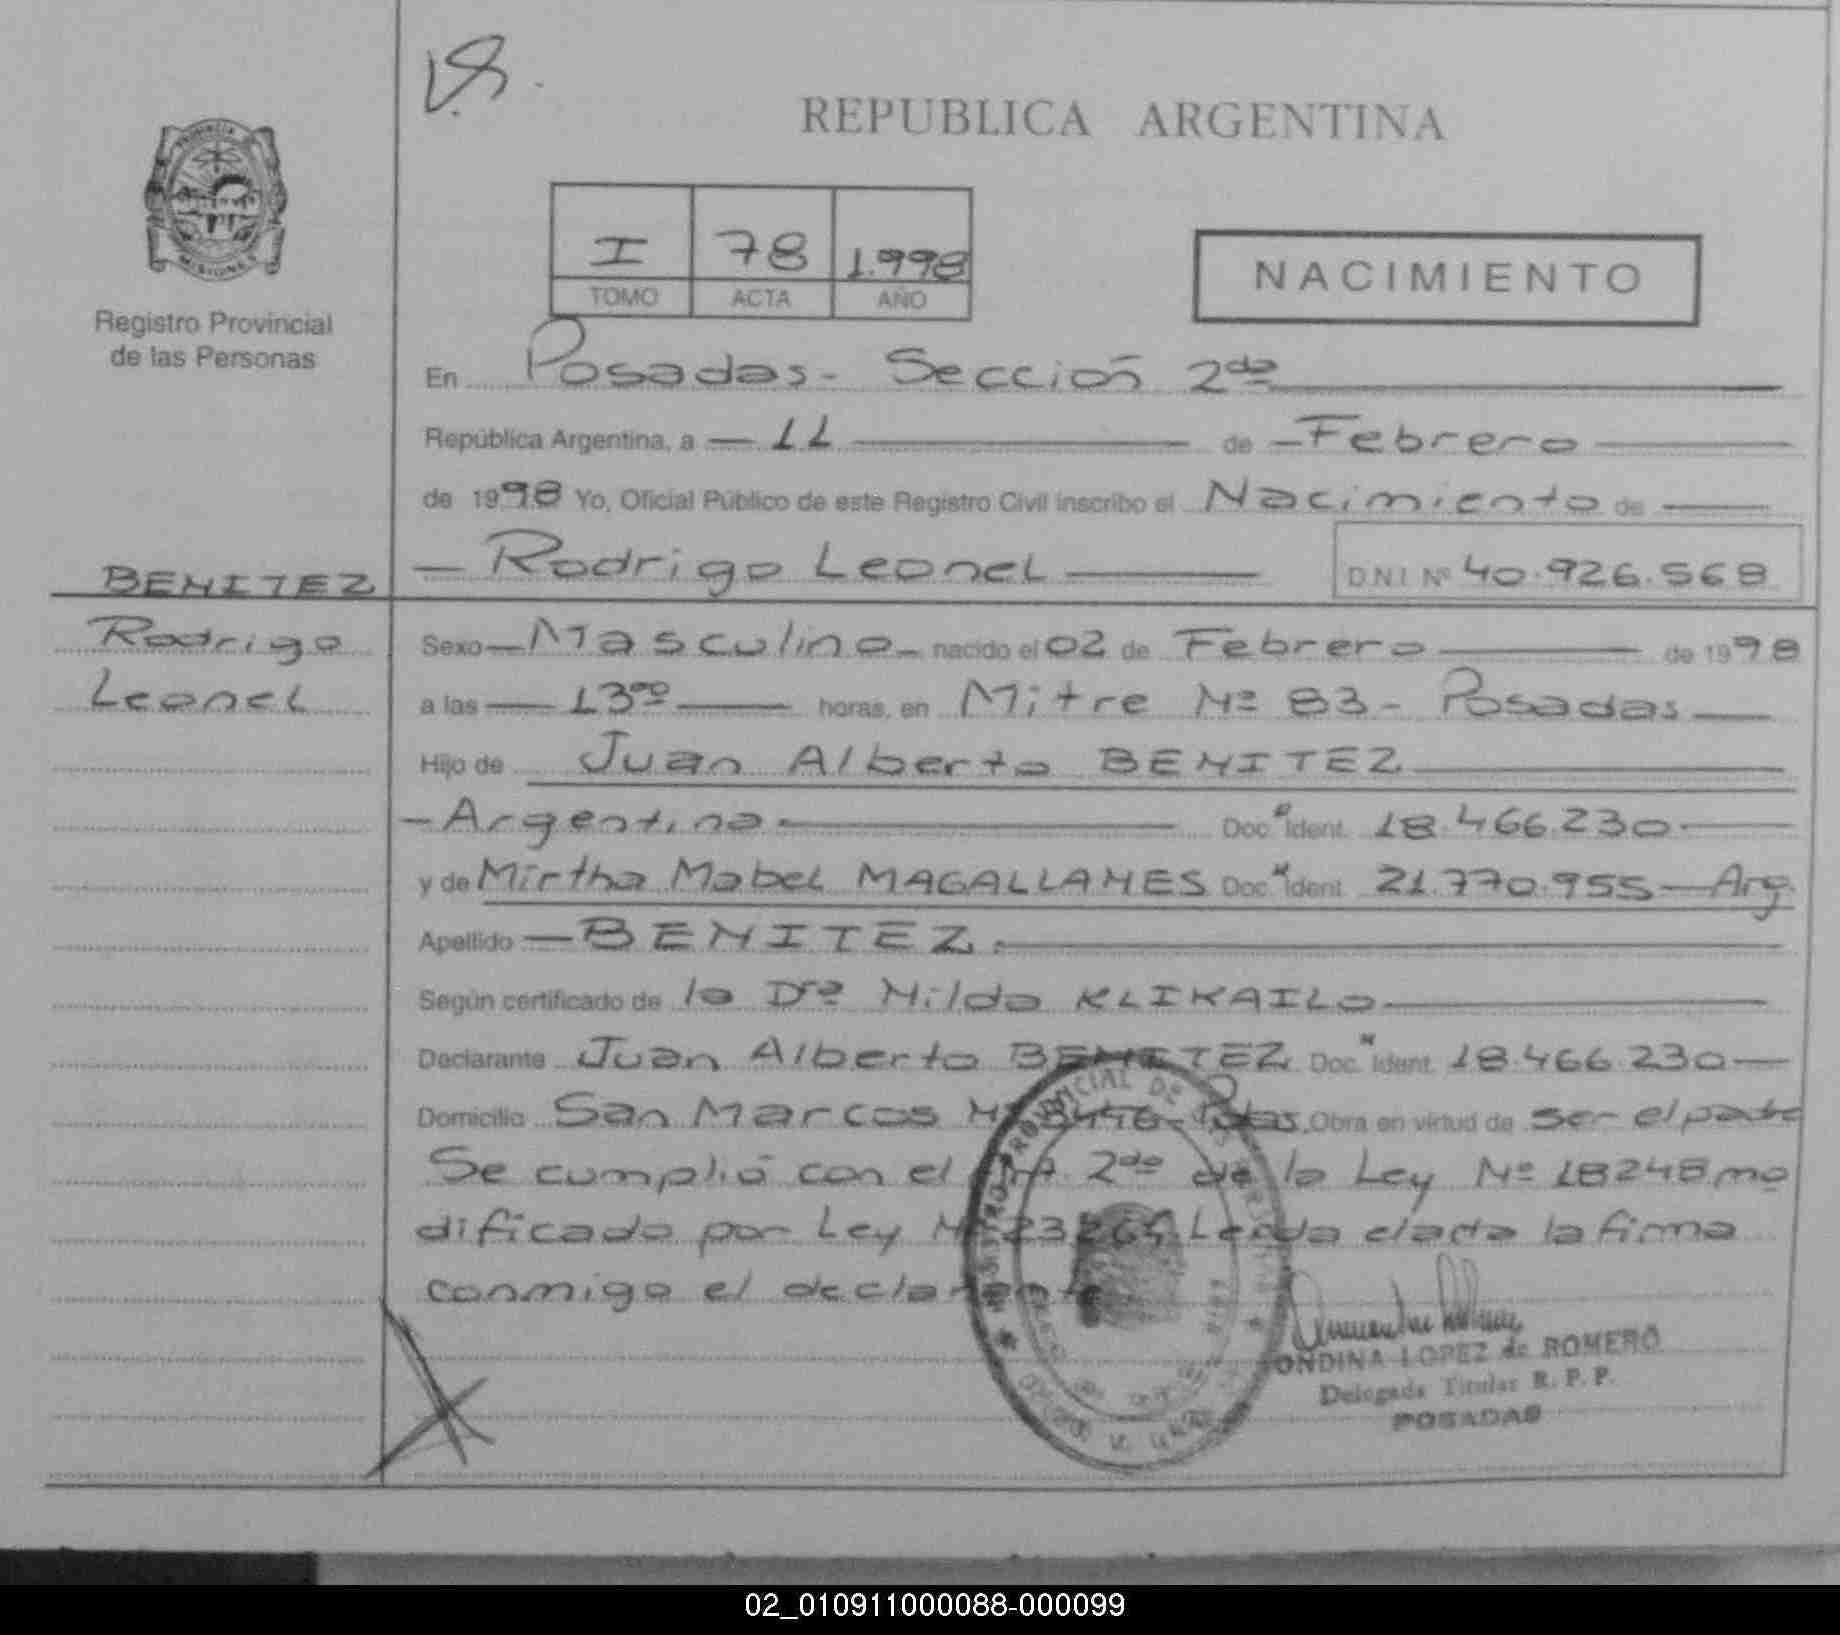 REPUBLICA ARGENTINA
PROVINCIA DE
MISIONES
Registro Provincial
de las Personas
I 78 1.998
TOMO ACTA AÑO
NACIMIENTO
En Posadas - Sección 2da
República Argentina, a 11 de Febrero
de 1998 Yo, Oficial Público de este Registro Civil inscribo el Nacimiento de
BENITEZ
Rodrigo
Leonel
Rodrigo Leonel D.N.I. Nº 40.926.568
Sexo Masculino nacido el 02 de Febrero de 1998
a las 13ºº horas, en Mitre Nº 83 - Posadas
Hijo de Juan Alberto BENITEZ
Argentina Doc. Ident. 18.466.230
y de Mirtha Mabel MAGALLANES Doc. Ident. 21.770.955 - Arg.
Apellido BENITEZ
Según certificado de la Drª Hilda KLIKAILO
Declarante Juan Alberto BENITEZ Doc. Ident. 18.466.230
Domicilio San Marcos Nº Pdas. Obra en virtud de ser el padre
Se cumplió con el Art. 2do de la Ley Nº 18248 mo
dificado por Ley Nº 23264. Leída el acta la firma
conmigo el declarante
ONDINA LOPEZ de ROMERO
Delegada Titular R. P. P.
POSADAS
02_010911000088-000099